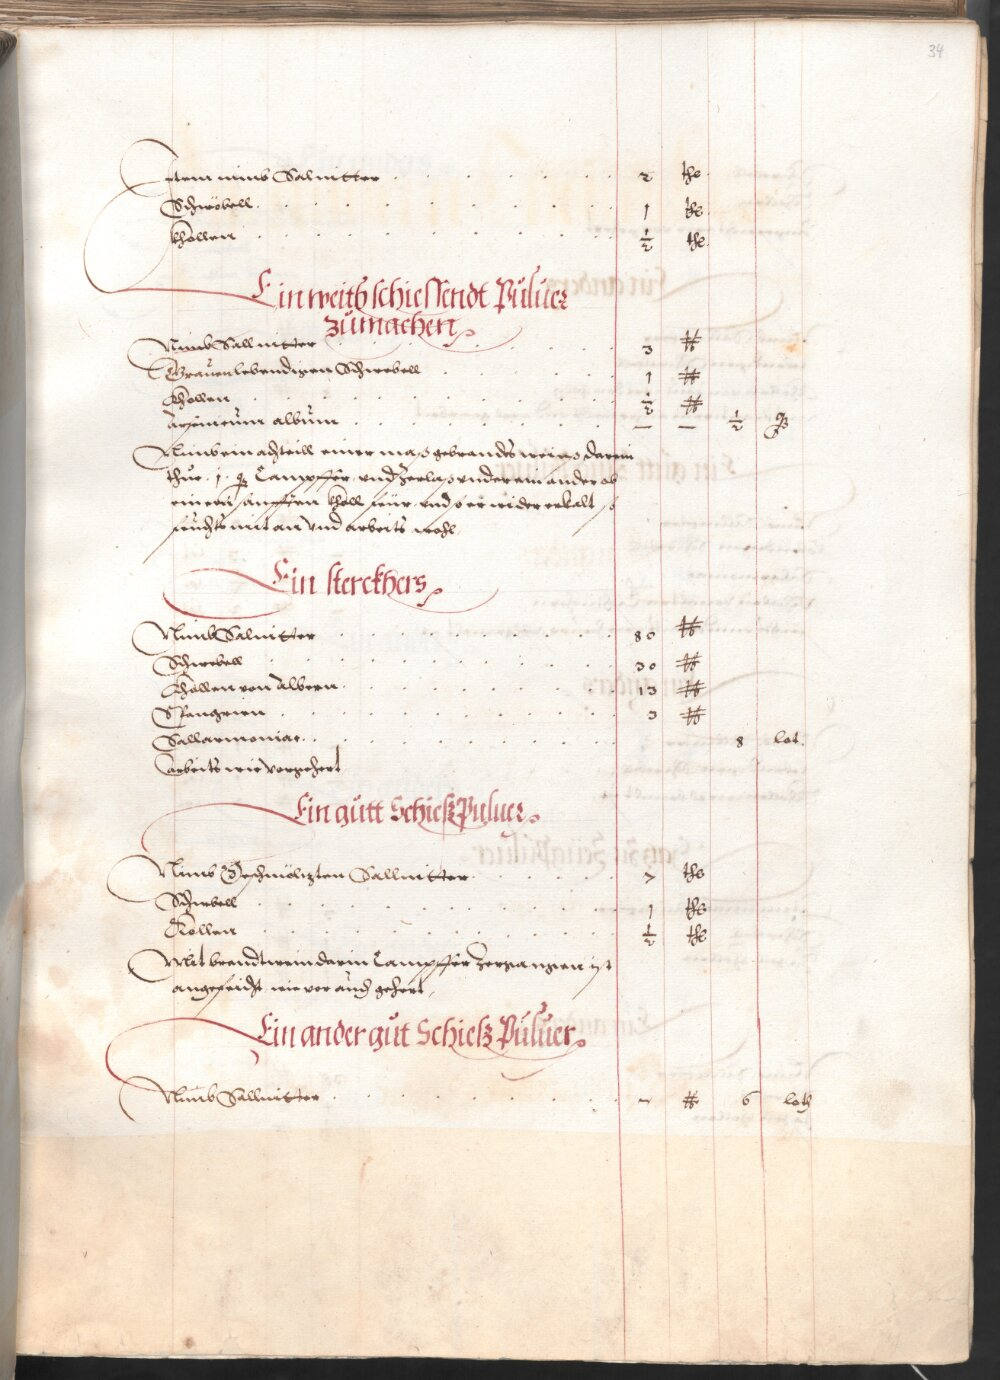 34
Item nimb Salnitter 2 lb
Schwöbell 1 lb
Khollen ½ lb
Ein weith schiessendt Puluer
zumachen
Nimb Sallnitter 3 lb
Grauen lebendigen Schwebell 1 lb
Khollen ½ lb
arsenicum album — — ½
Nimb ein achteill einer mas gebrandts weins darein
thue 1 Campffer vnd Zerlas vnder ein ander ob
einem sanfften Kholl feür vnd so er wider erkalt so
feuchts mit an vnd arbeits wohl
Ein sterckhers
Nimb Salnitter 80 lb
Schwebell 30 lb
Khollen von albern 13 lb
Spangrien 3 lb
Sallarmoniac 8 lot
arbeits wie vorgehert
Ein gutt Schieß Puluer
Nimb Geschmöltzten Sallnitter 7 lb
Schwebell 1 lb
Kollen ½ lb
Mit brendtwein darin Campffer Zergangen ist
angefeicht wie vor auch gehert
Ein ander gut Schieß Puluer
Nimb Sallnitter — lb 6 loth